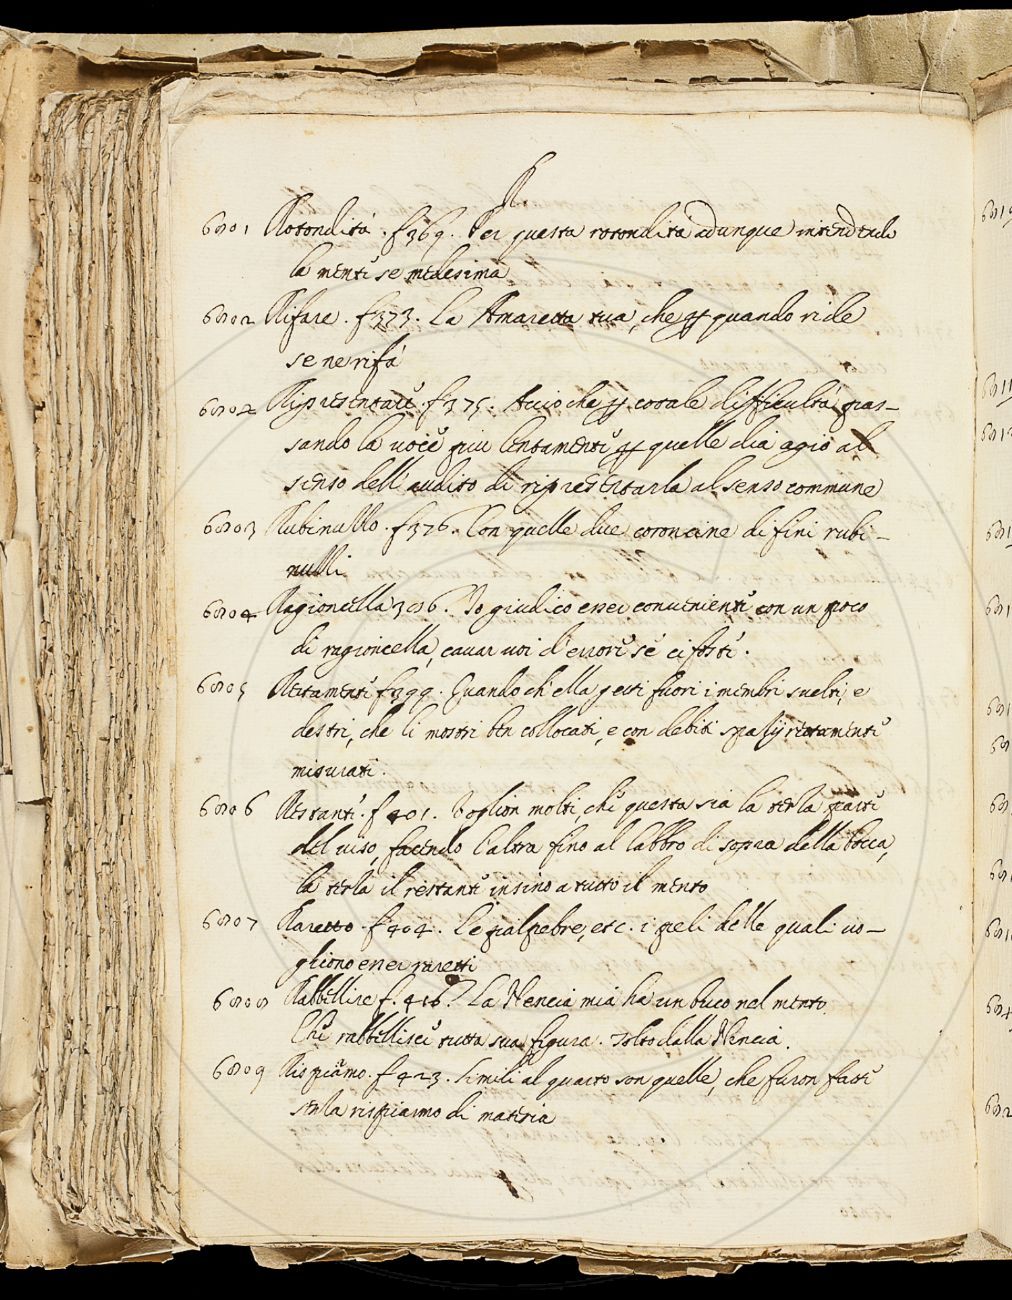 R
6801 Rotondità. f 369. Per questa rotondità adunque intendendo
la mente se medesima
6802 Rifare. f 373. La Amaretta tua, che quando ride
se ne rifà
6802 Ripresentare. f 375. Accio che cotale difficultà pas-
sando la voce piu lentamente quelle dia agio al
senso dell'audito di ripresentarla al senso commune
6803 Rubinuzzo. f 376. Con quelle due coroncine di fini rubi-
nuzzi
6804 Ragioncella 386. Io giudico esser conueniente con un poco
di ragioncella, cauar uoi d'errore se ci foste.
6805 Rettamente f 399. Quando ch'ella getti fuori i membri suelti, e
destri, che li mostri ben collocati, e con debiti spatij rettamente
misurati.
6806 Restante. f 401. Voglion molti, che questa sia la terza parte
del uiso, facendo l'altra fino al labbro di sopra della bocca,
la terza il restante insino a tutto il mento
6807 Raretto. f 404. Le palpebre, etc. i peli delle quali uo-
gliono esser raretti
6808 Rabbellire f. 416. La Nencia mia ha un buco nel mento
Che rabbellisce tutta sua figura. Tolto dalla Nencia.
6809 Rispiarmo. f 423. Simili al quarto son quelle, che furon fatte
senza rispiarmo di materia